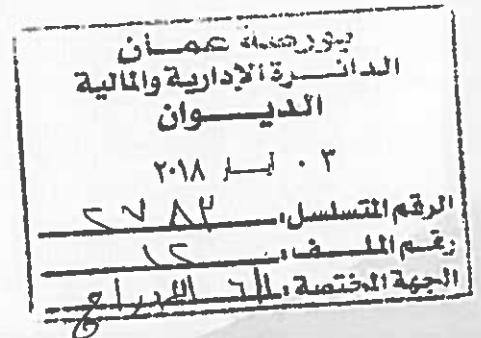 بورصة عمان
الدائرة الإدارية والمالية
الديوان
٠٣ أيار ٢٠١٨
الرقم المتسلسل: ٢٧٨٣
رقم الملف: ١٢
الجهة المختصة: